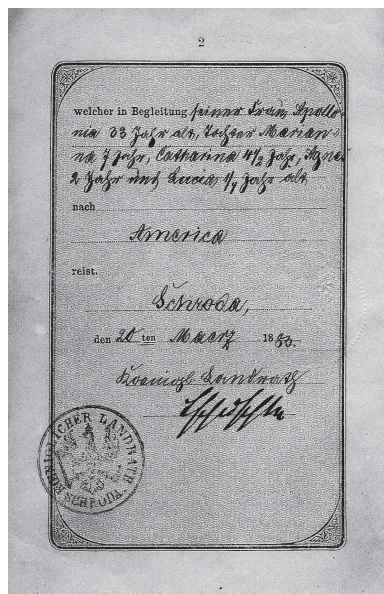 2
welcher in Begleitung seiner Frau Apollo-
nia 33 Jahr alt, Tochter Marian-
na 7 Jahr, Catharina 4½ Jahr, Agnes
2 Jahr und Lucia ¼ Jahr alt
nach
America
reist.
Schroda,
den 20 ten Maerz 1883.
Koenigl Landrath
KÖNIGLICHER LANDRATH
SCHRODA